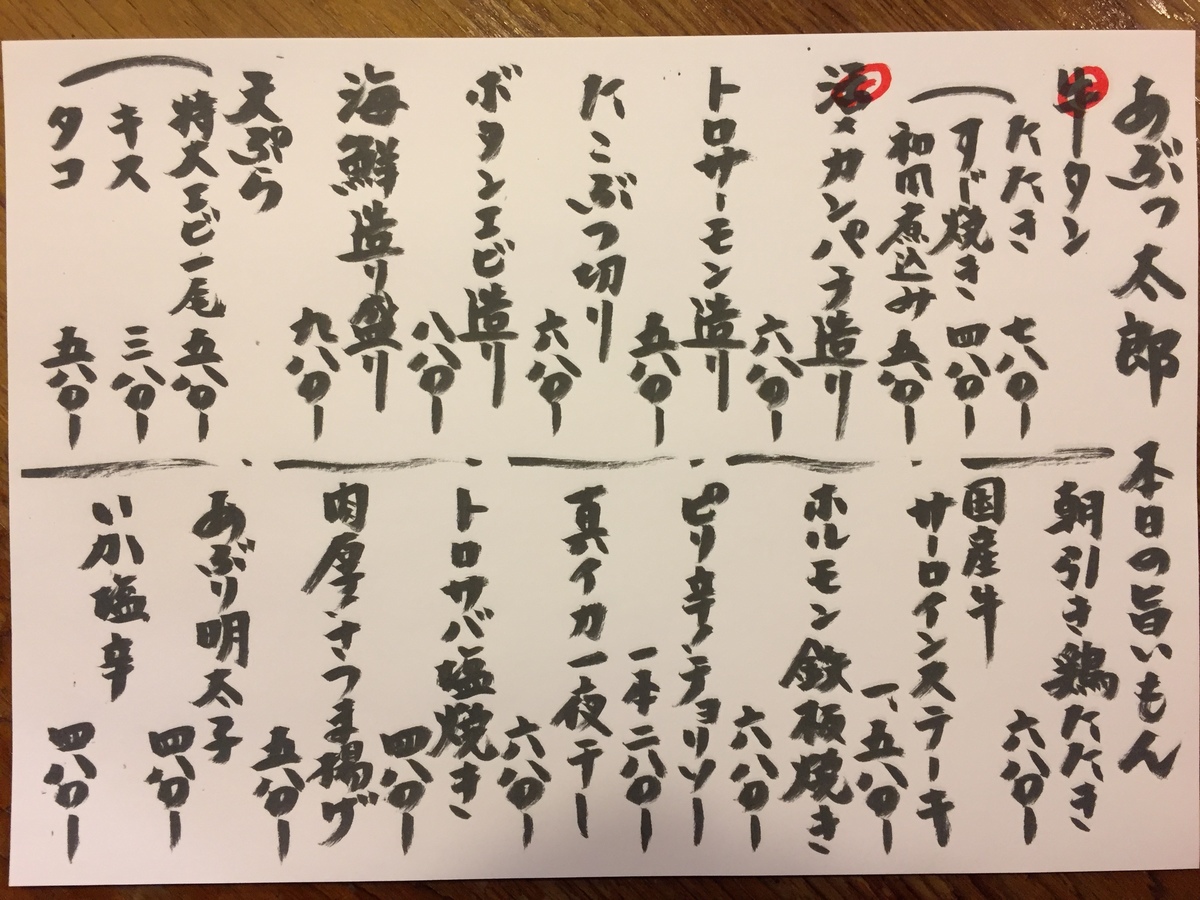 あぶつ太郎 本日の旨いもん
牛タン
たたき 七八〇ー
すじ焼き 四八〇ー
和風煮込み 五八〇ー
活〆カンパチ造り 六八〇ー
トロサーモン造り 五八〇ー
たこぶつ切り 六八〇ー
ボタンエビ造り 八八〇ー
海鮮造り盛り 九八〇ー
天ぷら
特大エビ一尾 五八〇ー
キス 三八〇ー
タコ 五八〇ー
朝引き鶏たたき 六八〇ー
国産牛
サーロインステーキ 一、五八〇ー
ホルモン鉄板焼き 六八〇ー
ピリ辛チョリソー 一本二八〇ー
真イカ一夜干し 六八〇ー
トロサバ塩焼き 四八〇ー
肉厚さつま揚げ 五八〇ー
あぶり明太子 四八〇ー
いか塩辛 四八〇ー